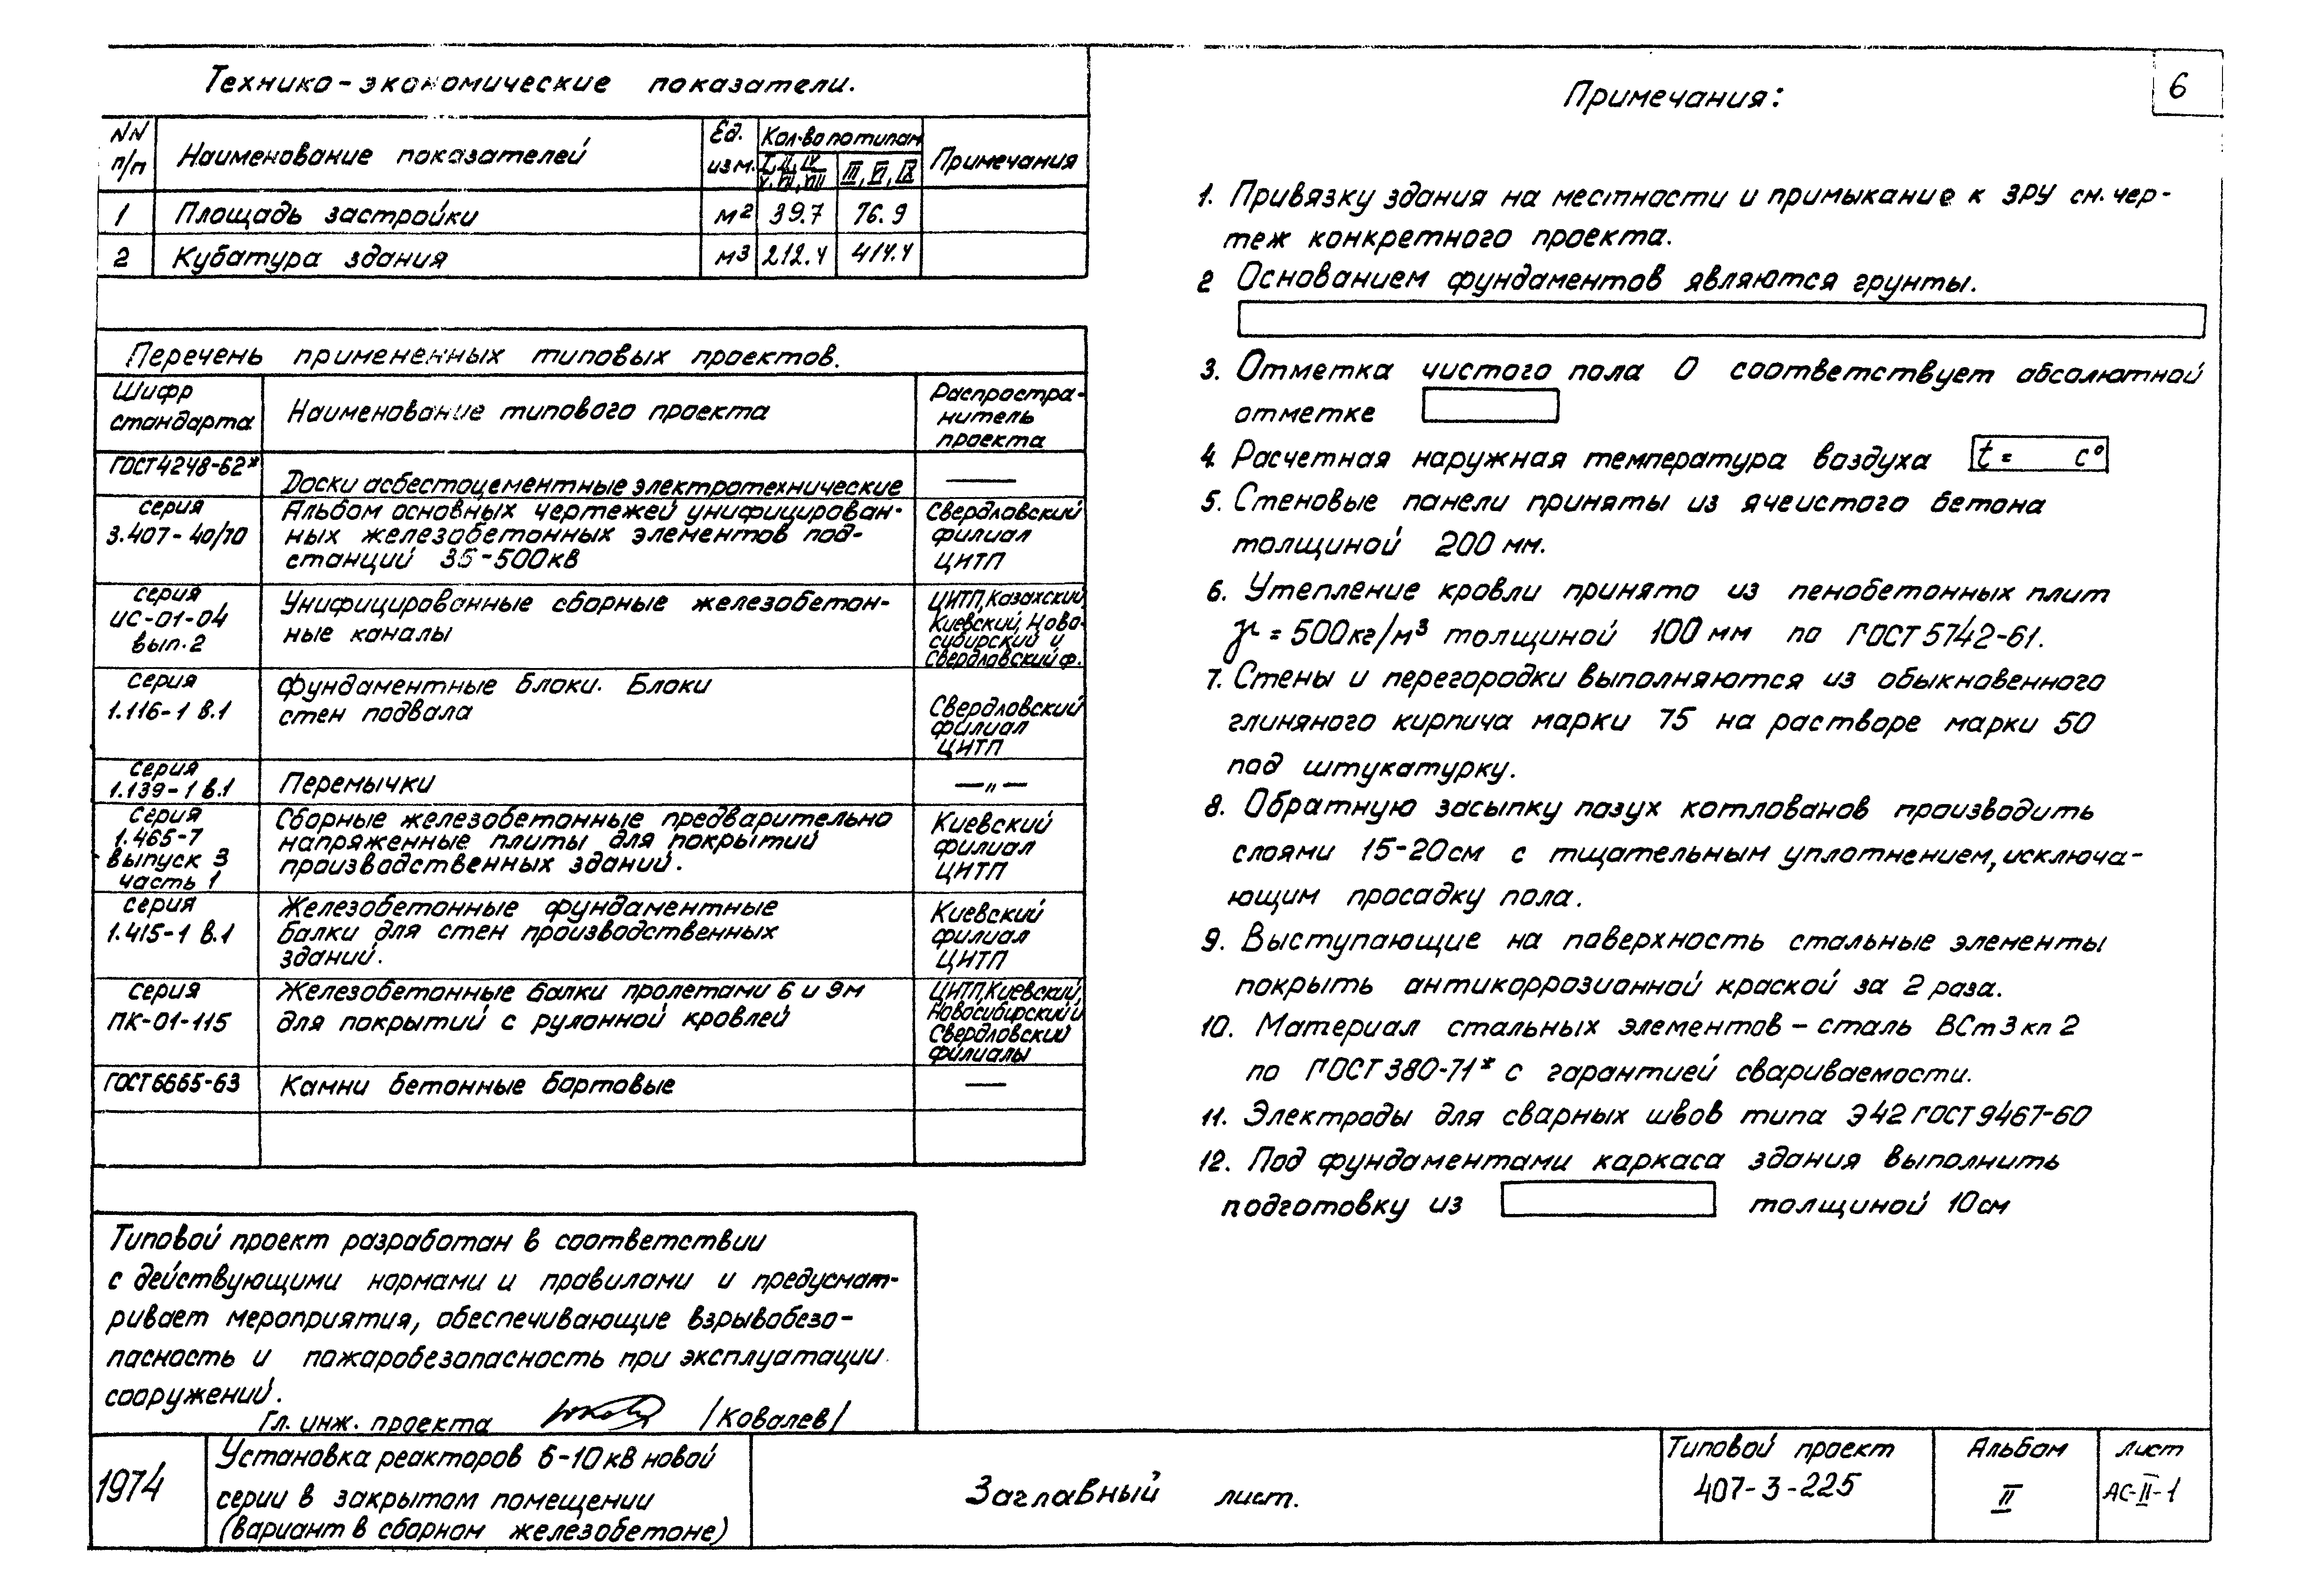 6
Технико-экономические показатели.
NN п/п
Наименование показателей
Ед. изм.
Кол-во по типам
I, II, IV
V, VII, VIII
III, VI, IX
Примечания
1 Площадь застройки м2 39.7 76.9
2 Кубатура здания м3 212.4 414.4
Перечень примененных типовых проектов.
Шифр
стандарта
Наименование типового проекта
Распростра-
нитель
проекта
ГОСТ 4248-62*
Доски асбестоцементные электротехнические —
серия
3.407-40/70
Альбом основных чертежей унифицирован-
ных железобетонных элементов под-
станций 35-500кв
Свердловский
филиал
ЦИТП
серия
ИС-01-04
вып.2
Унифицированные сборные железобетон-
ные каналы
ЦИТП, Казахский,
Киевский, Ново-
сибирский и
Свердловский ф.
серия
1.116-1 в.1
Фундаментные блоки. Блоки
стен подвала
Свердловский
филиал
ЦИТП
серия
1.139-1 в.1
Перемычки
—„—
серия
1.465-7
выпуск 3
часть 1
Сборные железобетонные предварительно
напряженные плиты для покрытий
производственных зданий.
Киевский
филиал
ЦИТП
серия
1.415-1 в.1
Железобетонные фундаментные
балки для стен производственных
зданий.
Киевский
филиал
ЦИТП
серия
ПК-01-115
Железобетонные балки пролетами 6 и 9м
для покрытий с рулонной кровлей
ЦИТП, Киевский,
Новосибирский и
Свердловский
филиалы
ГОСТ 6665-63 Камни бетонные бортовые —
Типовой проект разработан в соответствии
с действующими нормами и правилами и предусмат-
ривает мероприятия, обеспечивающие взрывобезо-
пасность и пожаробезопасность при эксплуатации
сооружений.
Гл. инж. проекта /Ковалев/
Примечания:
1. Привязку здания на местности и примыкание к ЗРУ см. чер-
теж конкретного проекта.
2 Основанием фундаментов являются грунты.
3. Отметка чистого пола 0 соответствует абсолютной
отметке
4. Расчетная наружная температура воздуха t= c°
5. Стеновые панели приняты из ячеистого бетона
толщиной 200 мм.
6. Утепление кровли принято из пенобетонных плит
γ = 500кг/м³ толщиной 100 мм по ГОСТ 5742-61.
7. Стены и перегородки выполняются из обыкновенного
глиняного кирпича марки 75 на растворе марки 50
под штукатурку.
8. Обратную засыпку пазух котлованов производить
слоями 15-20см с тщательным уплотнением, исключа-
ющим просадку пола.
9. Выступающие на поверхность стальные элементы
покрыть антикоррозионной краской за 2 раза.
10. Материал стальных элементов – сталь ВСт3кп2
по ГОСТ 380-71* с гарантией свариваемости.
11. Электроды для сварных швов типа Э42 ГОСТ 9467-60
12. Под фундаментами каркаса здания выполнить
подготовку из толщиной 10см
1974
Установка реакторов 6-10кв новой
серии в закрытом помещении
(вариант в сборном железобетоне)
Заглавный лист.
Типовой проект
407-3-225
Альбом
II
лист
АС-II-1